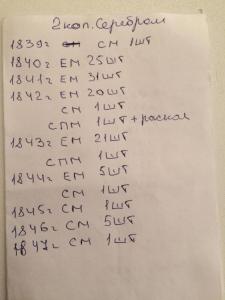 2 коп. Серебром
1839г СМ 1шт
1840г ЕМ 25шт
1841г ЕМ 31шт
1842г ЕМ 20шт
СМ 1шт
СПМ 1шт + раскол
1843г ЕМ 21шт
СПМ 1шт
1844г ЕМ 5шт
СМ 1шт
1845г СМ 1шт
1846г СМ 5шт
1847г СМ 1шт